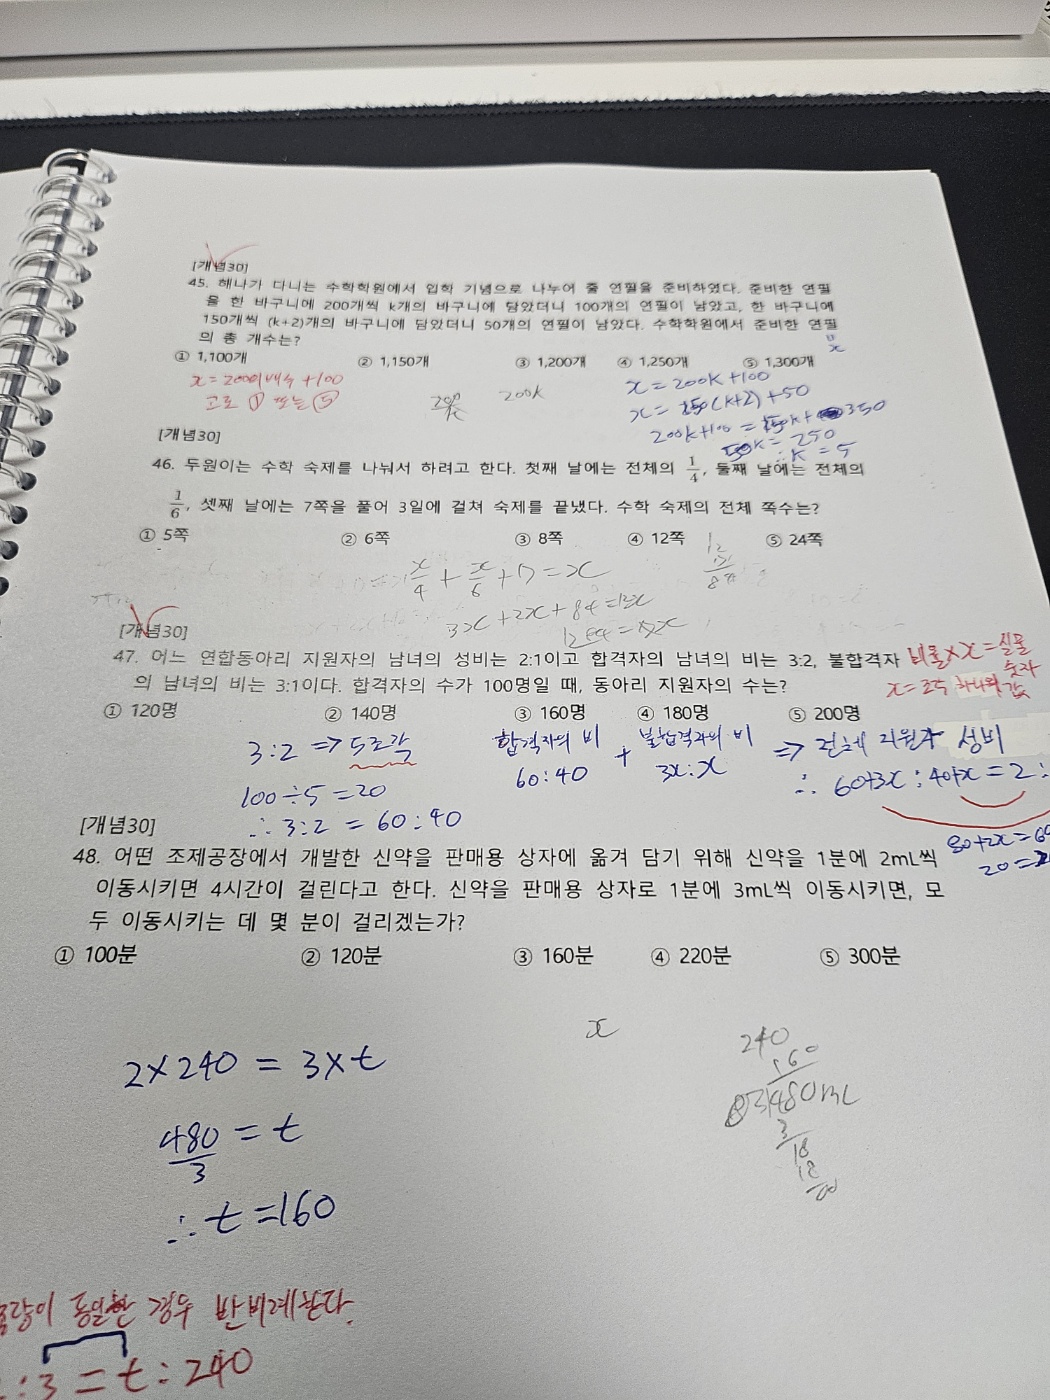 [개념30]
45. 해나가 다니는 수학학원에서 입학 기념으로 나누어 줄 연필을 준비하였다. 준비한 연필
을 한 바구니에 200개씩 k개의 바구니에 담았더니 100개의 연필이 남았고, 한 바구니에
150개씩 (k+2)개의 바구니에 담았더니 50개의 연필이 남았다. 수학학원에서 준비한 연필
의 총 개수는?
x
① 1,100개 ② 1,150개 ③ 1,200개 ④ 1,250개 ⑤ 1,300개
x = 200의 배수 +100
고로 ① 또는 ⑤
200k
x = 200k+100
x = 150(k+2)+50
200k+100 = 150k+350
50k = 250
∴ k = 5
[개념30]
46. 두원이는 수학 숙제를 나눠서 하려고 한다. 첫째 날에는 전체의 1/4, 둘째 날에는 전체의
1/6, 셋째 날에는 7쪽을 풀어 3일에 걸쳐 숙제를 끝냈다. 수학 숙제의 전체 쪽수는?
① 5쪽 ② 6쪽 ③ 8쪽 ④ 12쪽 ⑤ 24쪽
x/4 + x/6 + 7 = x
3x+2x+84=12x
[개념30]
47. 어느 연합동아리 지원자의 남녀의 성비는 2:1이고 합격자의 남녀의 비는 3:2, 불합격자
의 남녀의 비는 3:1이다. 합격자의 수가 100명일 때, 동아리 지원자의 수는?
비율×x = 실물
숫자
x = 조각 하나의 값
① 120명 ② 140명 ③ 160명 ④ 180명 ⑤ 200명
3:2 ⇒ 5조각
100÷5=20
∴ 3:2 = 60:40
합격자의 비 + 불합격자의 비 ⇒ 전체 지원자 성비
60:40 3x:x
∴ 60+3x : 40+x = 2:
80+2x=60
[개념30]
48. 어떤 조제공장에서 개발한 신약을 판매용 상자에 옮겨 담기 위해 신약을 1분에 2mL씩
이동시키면 4시간이 걸린다고 한다. 신약을 판매용 상자로 1분에 3mL씩 이동시키면, 모
두 이동시키는 데 몇 분이 걸리겠는가?
① 100분 ② 120분 ③ 160분 ④ 220분 ⑤ 300분
x
2×240 = 3×t
480/3 = t
∴ t=160
240
160
480mL
3
18
18
동일한 경우 반비례한다.
:3 = t:240